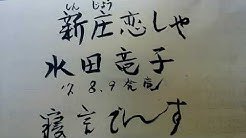 しん じょう
新庄恋しや
水田竜子
17.8.9発売
寝言でんす